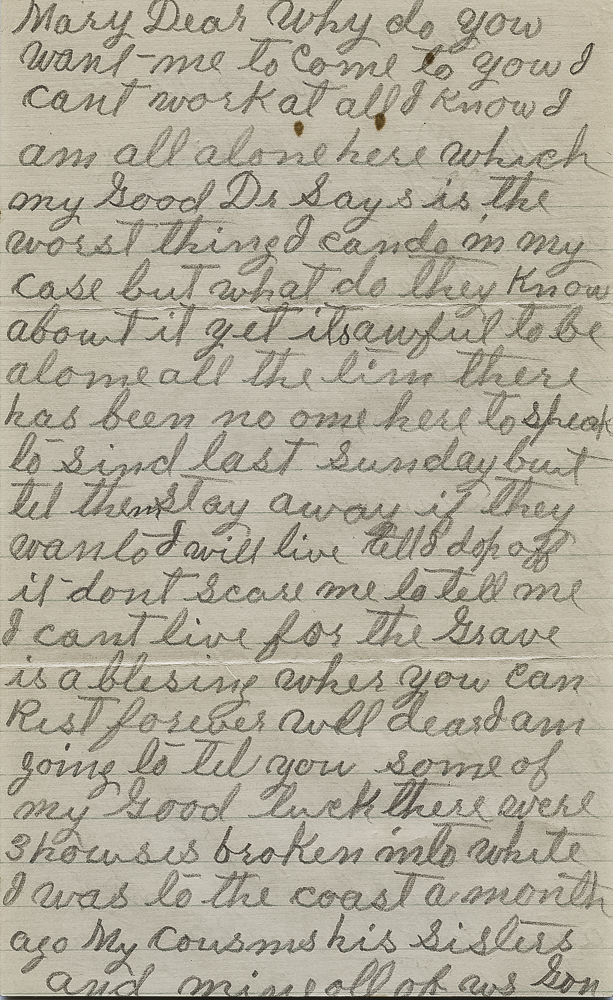 Mary Dear Why do you
want me to come to you I
cant work at all I know I
am all alone here which
my Good Dr Says is the
worst thing I can do in my
case but what do they Know
about it yet its awful to be
alone all the tim there
has been no one here to speak
to sind last Sunday but
tel them stay away if they
want to I will live till I dop off
it dont scare me to tell me
I cant live for the Grave
is a blesing wher you can
Rest forever well dear I am
going to tel you some of
my Good luck there were
3 howses broken into while
I was to the coast a month
ago My Cousins his Sisters
and mine all of us Gon